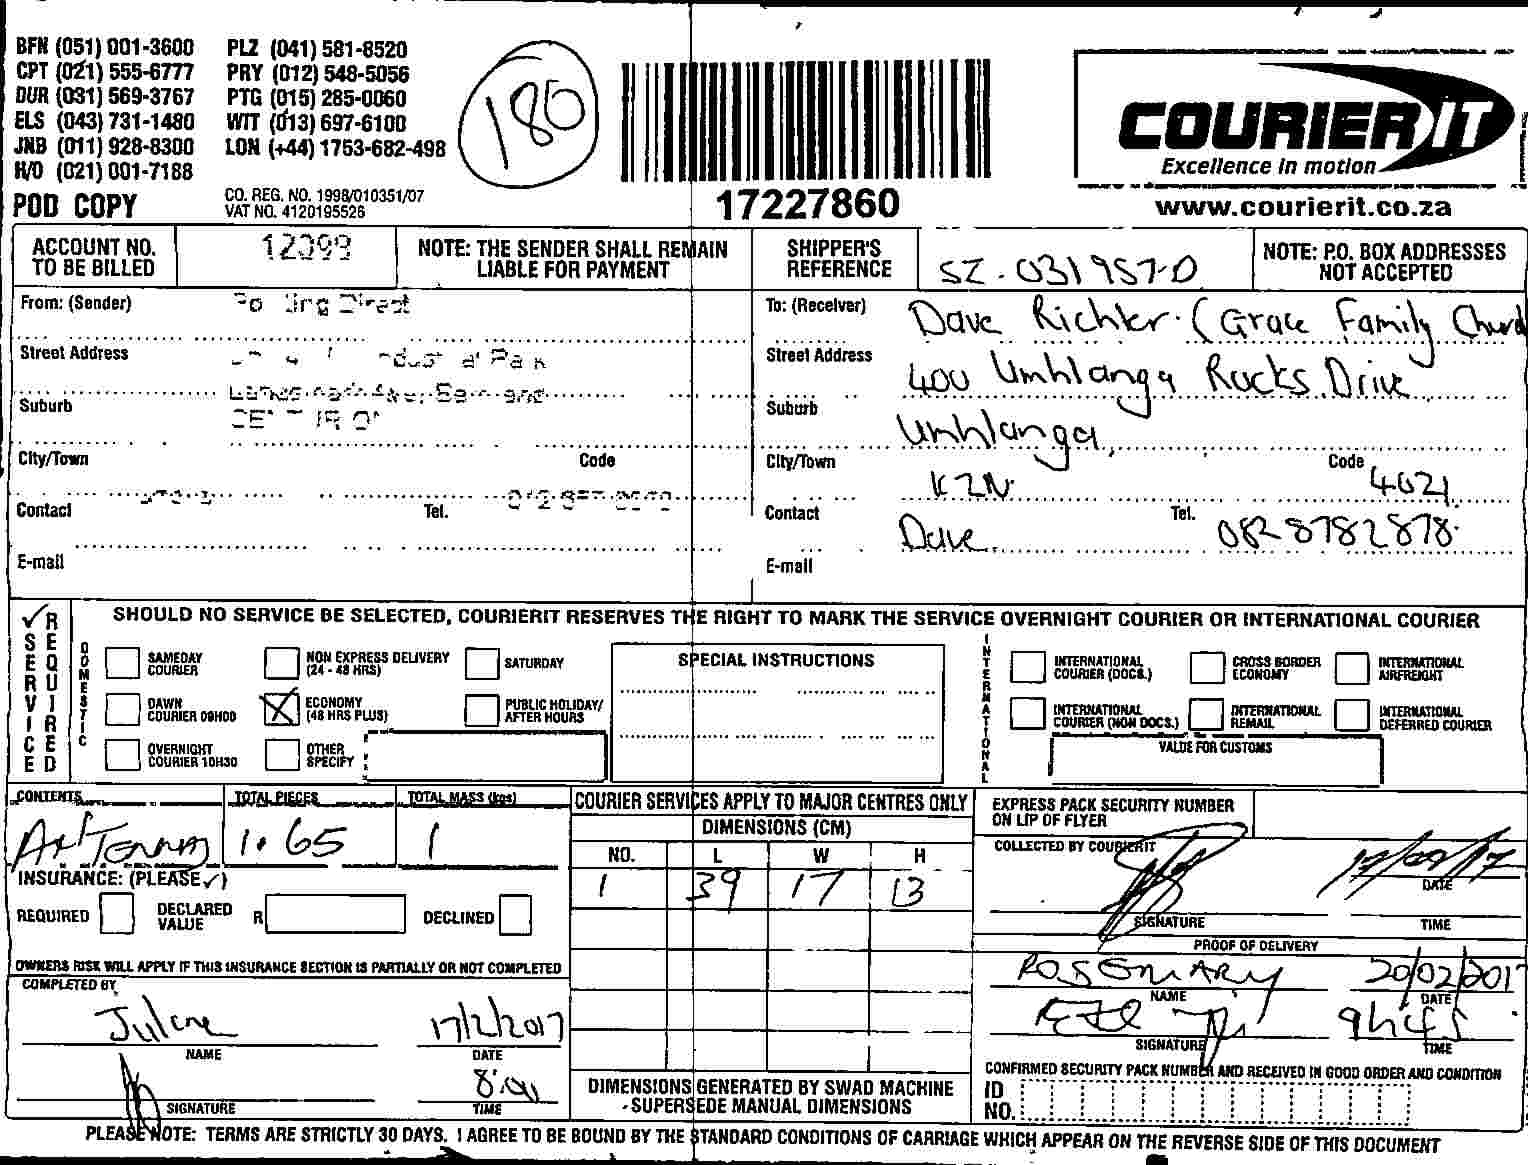 BFN (051) 001-3600 PLZ (041) 581-8520
CPT (021) 555-6777 PRY (012) 548-5056
DUR (031) 569-3767 PTG (015) 285-0060
ELS (043) 731-1480 WIT (013) 697-6100
JNB (011) 928-8300 LON (+44) 1753-682-498
H/O (021) 001-7188
180
COURIER IT
Excellence in motion
POD COPY
CO. REG. NO. 1998/010351/07
VAT NO. 4120195526
17227860
www.courierit.co.za
ACCOUNT NO. TO BE BILLED 12099
NOTE: THE SENDER SHALL REMAIN LIABLE FOR PAYMENT
SHIPPER'S REFERENCE SZ-031957-D
NOTE: P.O. BOX ADDRESSES NOT ACCEPTED
From: (Sender)
Street Address
Suburb
City/Town Code
Contact Tel.
E-mail
To: (Receiver) Dave Richter (Grace Family Church
Street Address 400 Umhlanga Rocks Drive
Suburb Umhlanga
City/Town KZN Code 4021
Contact Dave Tel. 082 8782878
E-mail
SERVICE REQUIRED
SHOULD NO SERVICE BE SELECTED, COURIERIT RESERVES THE RIGHT TO MARK THE SERVICE OVERNIGHT COURIER OR INTERNATIONAL COURIER
DOMESTIC
SAMEDAY COURIER
NON EXPRESS DELIVERY (24 - 48 HRS)
SATURDAY
DAWN COURIER 09H00
ECONOMY (48 HRS PLUS)
PUBLIC HOLIDAY/ AFTER HOURS
OVERNIGHT COURIER 10H30
OTHER SPECIFY
SPECIAL INSTRUCTIONS
INTERNATIONAL
INTERNATIONAL COURIER (DOCS.)
CROSS BORDER ECONOMY
INTERNATIONAL AIRFREIGHT
INTERNATIONAL COURIER (NON DOCS.)
INTERNATIONAL REMAIL
INTERNATIONAL DEFERRED COURIER
VALUE FOR CUSTOMS
CONTENTS TOTAL PIECES TOTAL MASS (kgs)
Antenna 1.65 1
INSURANCE: (PLEASE ✓)
REQUIRED DECLARED VALUE R DECLINED
OWNERS RISK WILL APPLY IF THIS INSURANCE SECTION IS PARTIALLY OR NOT COMPLETED
COMPLETED BY
Julene 17/2/2017
NAME DATE
SIGNATURE TIME
COURIER SERVICES APPLY TO MAJOR CENTRES ONLY
DIMENSIONS (CM)
NO. L W H
1 39 17 13
DIMENSIONS GENERATED BY SWAD MACHINE
- SUPERSEDE MANUAL DIMENSIONS
EXPRESS PACK SECURITY NUMBER ON LIP OF FLYER
COLLECTED BY COURIERIT
17/02/17
DATE
SIGNATURE TIME
PROOF OF DELIVERY
ROSEMARY 20/02/2017
NAME DATE
9h45
SIGNATURE TIME
CONFIRMED SECURITY PACK NUMBER AND RECEIVED IN GOOD ORDER AND CONDITION
ID NO.
PLEASE NOTE: TERMS ARE STRICTLY 30 DAYS. I AGREE TO BE BOUND BY THE STANDARD CONDITIONS OF CARRIAGE WHICH APPEAR ON THE REVERSE SIDE OF THIS DOCUMENT